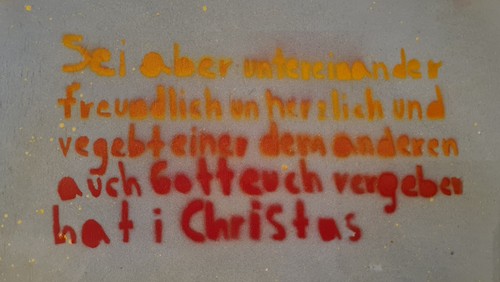 Sei aber untereinander
freundlich un herzlich und
vegebt einer dem anderen
auch Gott euch vergeben
hat i Christus